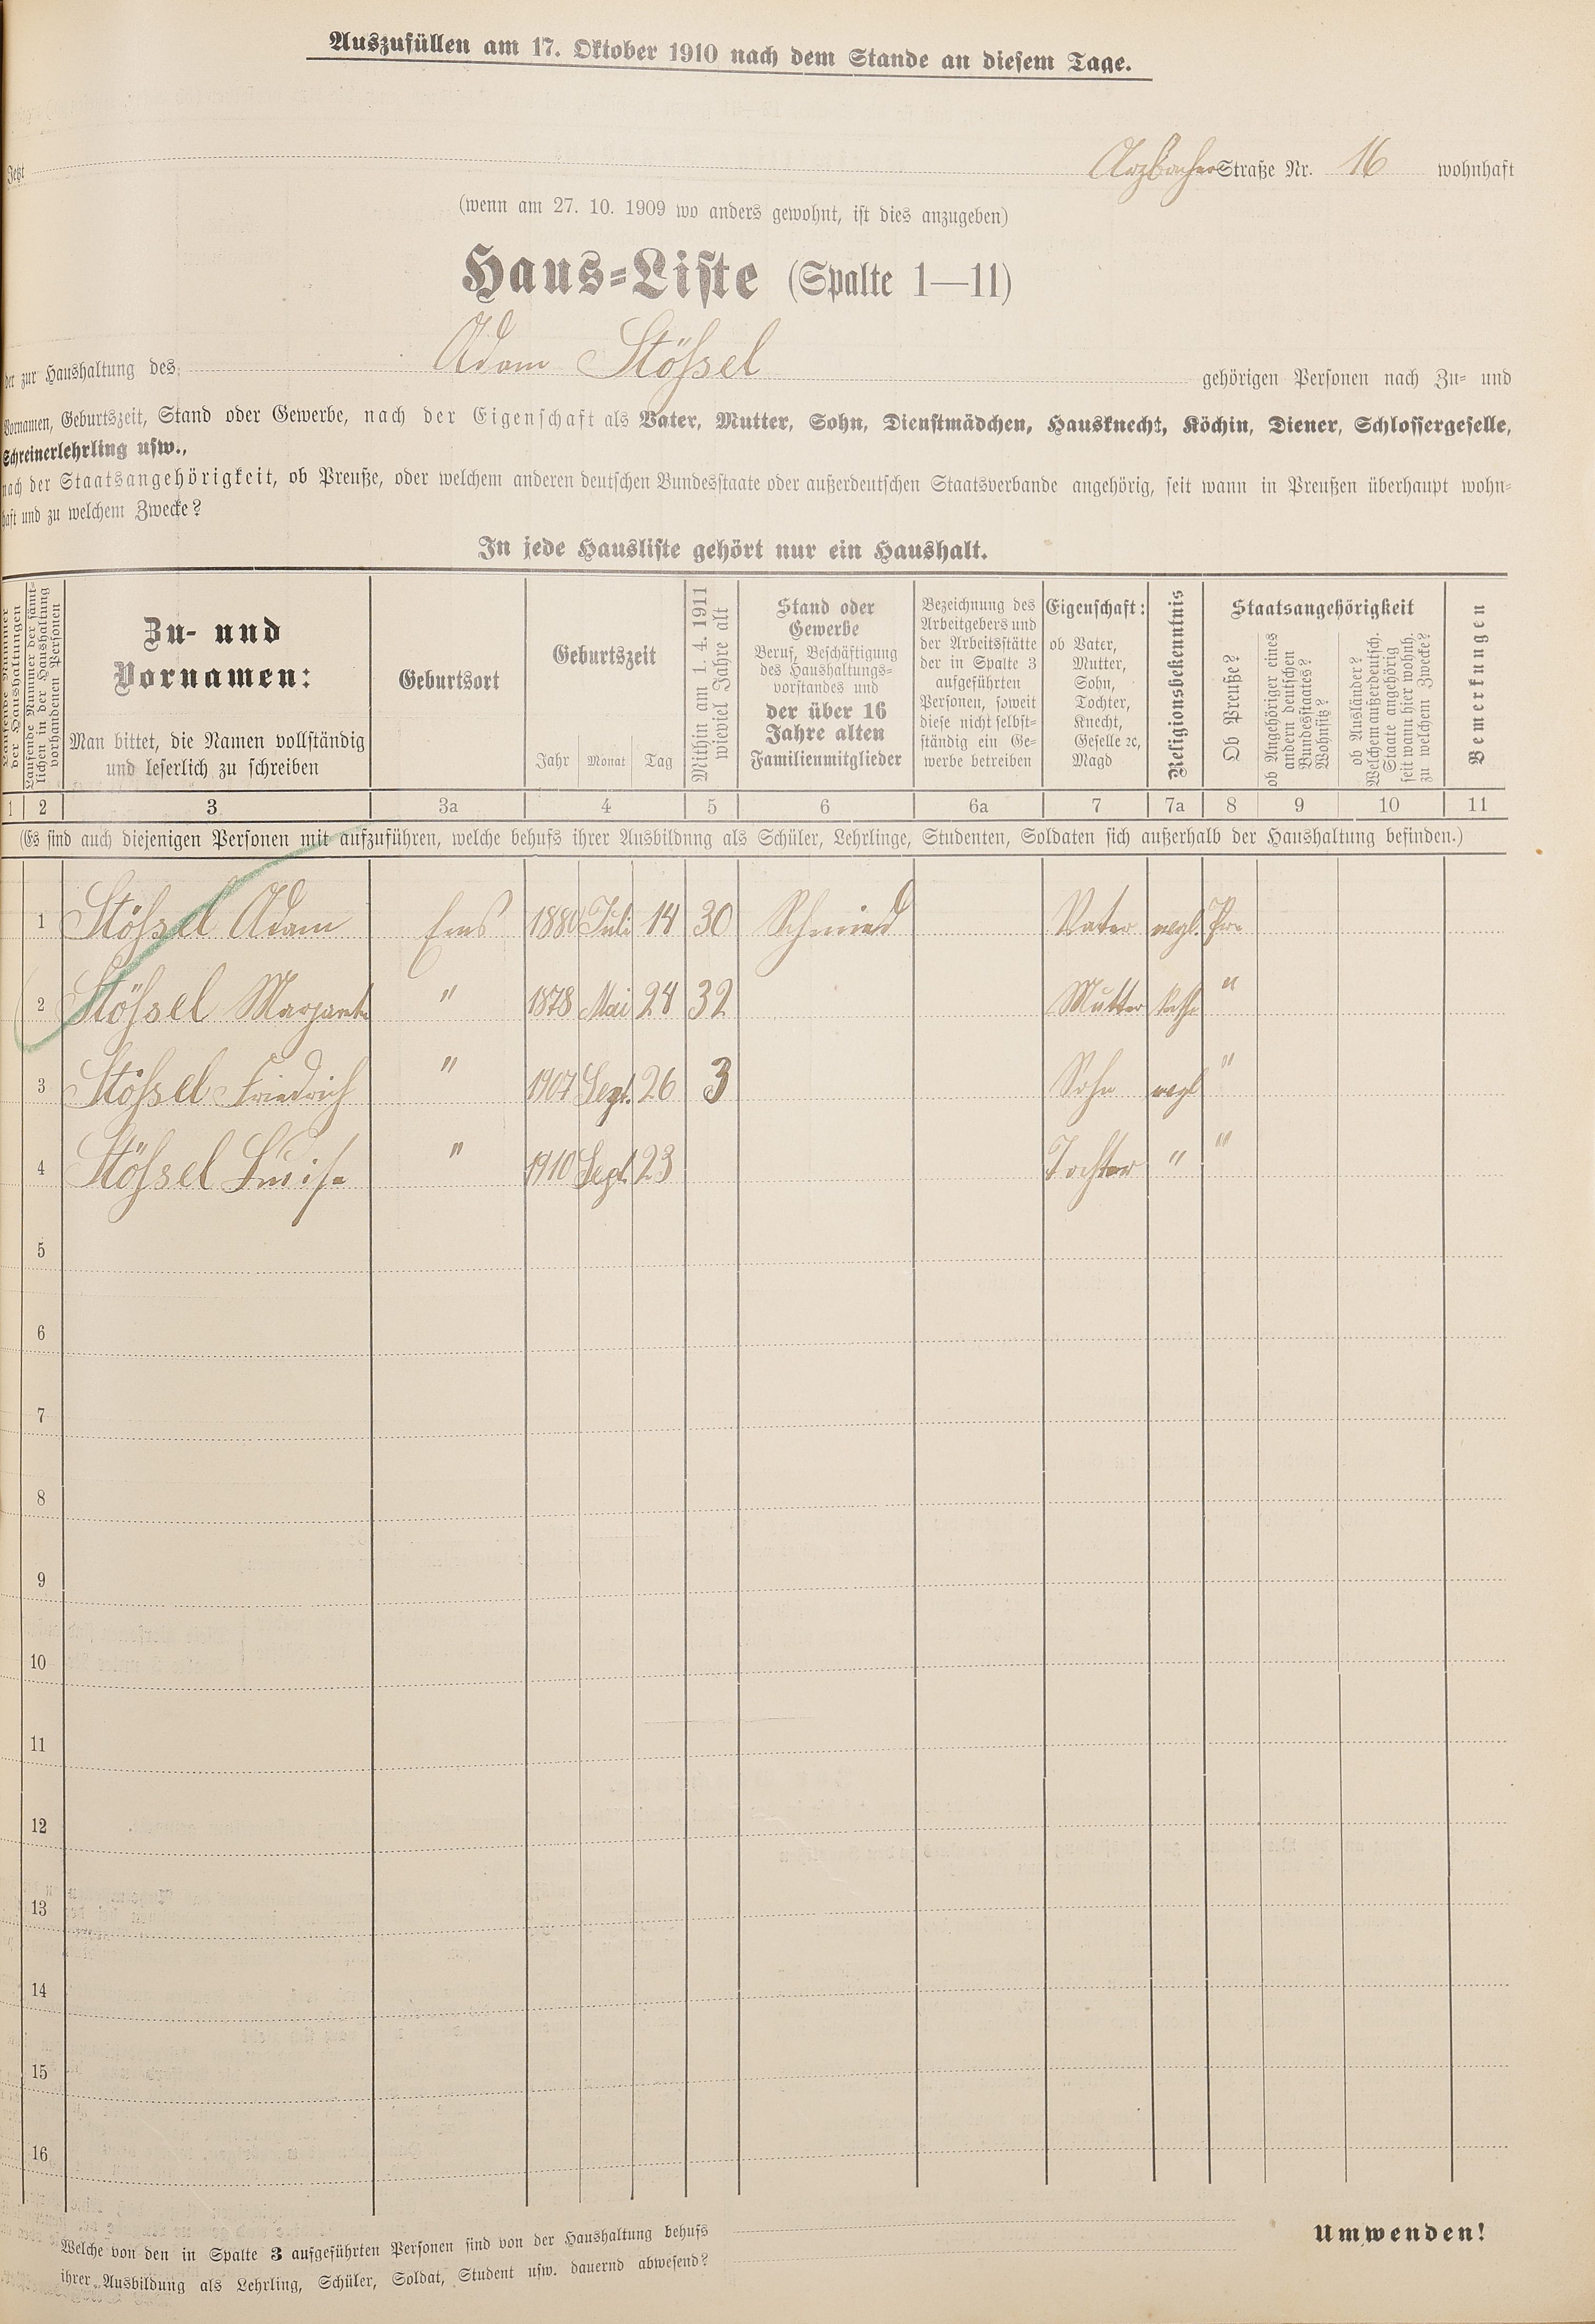 Auszufüllen am 17. Oktober 1910 nach dem Stande an diesem Tage.
Jetzt Arzbacher Straße Nr. 16 wohnhaft
(wenn am 27. 10. 1909 wo anders gewohnt, ist dies anzugeben)
Haus-Liste (Spalte 1—11)
der zur Haushaltung des Adam Stößel gehörigen Personen nach Zu- und
Vornamen, Geburtszeit, Stand oder Gewerbe, nach der Eigenschaft als Vater, Mutter, Sohn, Dienstmädchen, Hausknecht, Köchin, Diener, Schlossergeselle,
Schreinerlehrling usw.,
nach der Staatsangehörigkeit, ob Preuße, oder welchem anderen deutschen Bundesstaate oder außerdeutschen Staatsverbande angehörig, seit wann in Preußen überhaupt wohn-
haft und zu welchem Zwecke?
In jede Hausliste gehört nur ein Haushalt.
Laufende Nummer
der Haushaltungen
Laufende Nummer der sämt-
lichen in der Haushaltung
vorhandenen Personen
Zu- und
Vornamen:
Man bittet, die Namen vollständig
und leserlich zu schreiben
Geburtsort
Geburtszeit
Jahr Monat Tag
Mithin am 1. 4. 1911
wieviel Jahre alt
Stand oder
Gewerbe
Beruf, Beschäftigung
des Haushaltungs-
vorstandes und
der über 16
Jahre alten
Familienmitglieder
Bezeichnung des
Arbeitgebers und
der Arbeitsstätte
der in Spalte 3
aufgeführten
Personen, soweit
diese nicht selbst-
ständig ein Ge-
werbe betreiben
Eigenschaft:
ob Vater,
Mutter,
Sohn,
Tochter,
Knecht,
Geselle ꝛc,
Magd
Religionsbekenntnis
Staatsangehörigkeit
Ob Preuße?
ob Angehöriger eines
andern deutschen
Bundesstaates?
Wohnsitz?
ob Ausländer?
Welchem außerdeutsch.
Staate angehörig
seit wann hier wohnh.
zu welchem Zwecke?
Bemerkungen
1 2 3 3a 4 5 6 6a 7 7a 8 9 10 11
(Es sind auch diejenigen Personen mit aufzuführen, welche behufs ihrer Ausbildung als Schüler, Lehrlinge, Studenten, Soldaten sich außerhalb der Haushaltung befinden.)
1 Stößel Adam Ems 1880 Juli 14 30 Schmied Vater evgl. Pr.
2 Stößel Margarete " 1878 Mai 24 32 Mutter kath. "
3 Stößel Friedrich " 1907 Sept. 26 3 Sohn evgl "
4 Stößel Luise " 1910 Sept. 23 Tochter " "
5
6
7
8
9
10
11
12
13
14
15
16
Welche von den in Spalte 3 aufgeführten Personen sind von der Haushaltung behufs
ihrer Ausbildung als Lehrling, Schüler, Soldat, Student usw. dauernd abwesend?
Umwenden!